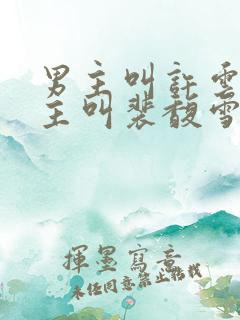 男主叫許雲
主叫裴馥雪
揮墨寫意
未經同意禁止搭載